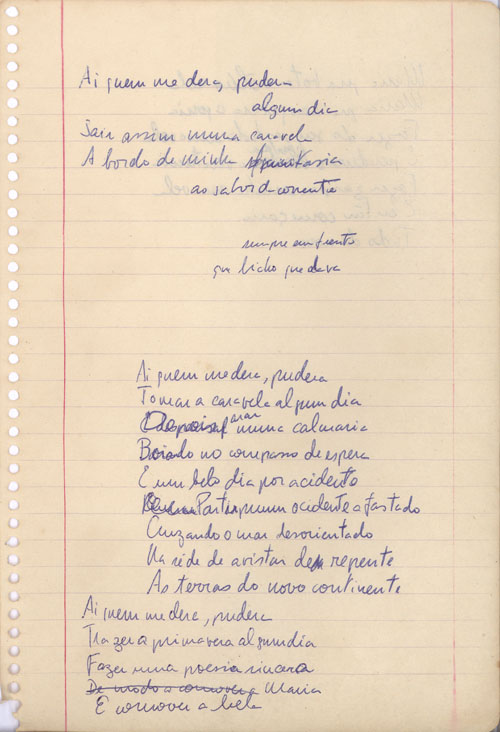 Ai quem me dera, pudera
algum dia
Sair assim numa caravela
A bordo de minha fantasia
ao sabor da corrente
sempre em frente
que bicho que dava
Ai quem me dera, pudera
Tomar a caravela algum dia
Depois parar numa calmaria
Boiando no compasso de espera
E um belo dia por acidente
Partir num ocidente afastado
Cruzando o mar desorientado
Na sede de avistar de repente
As terras do novo continente
Ai quem me dera, pudera
Trazer a primavera algum dia
Fazer uma poesia sincera
De modo a comover a Maria
E comover a bela